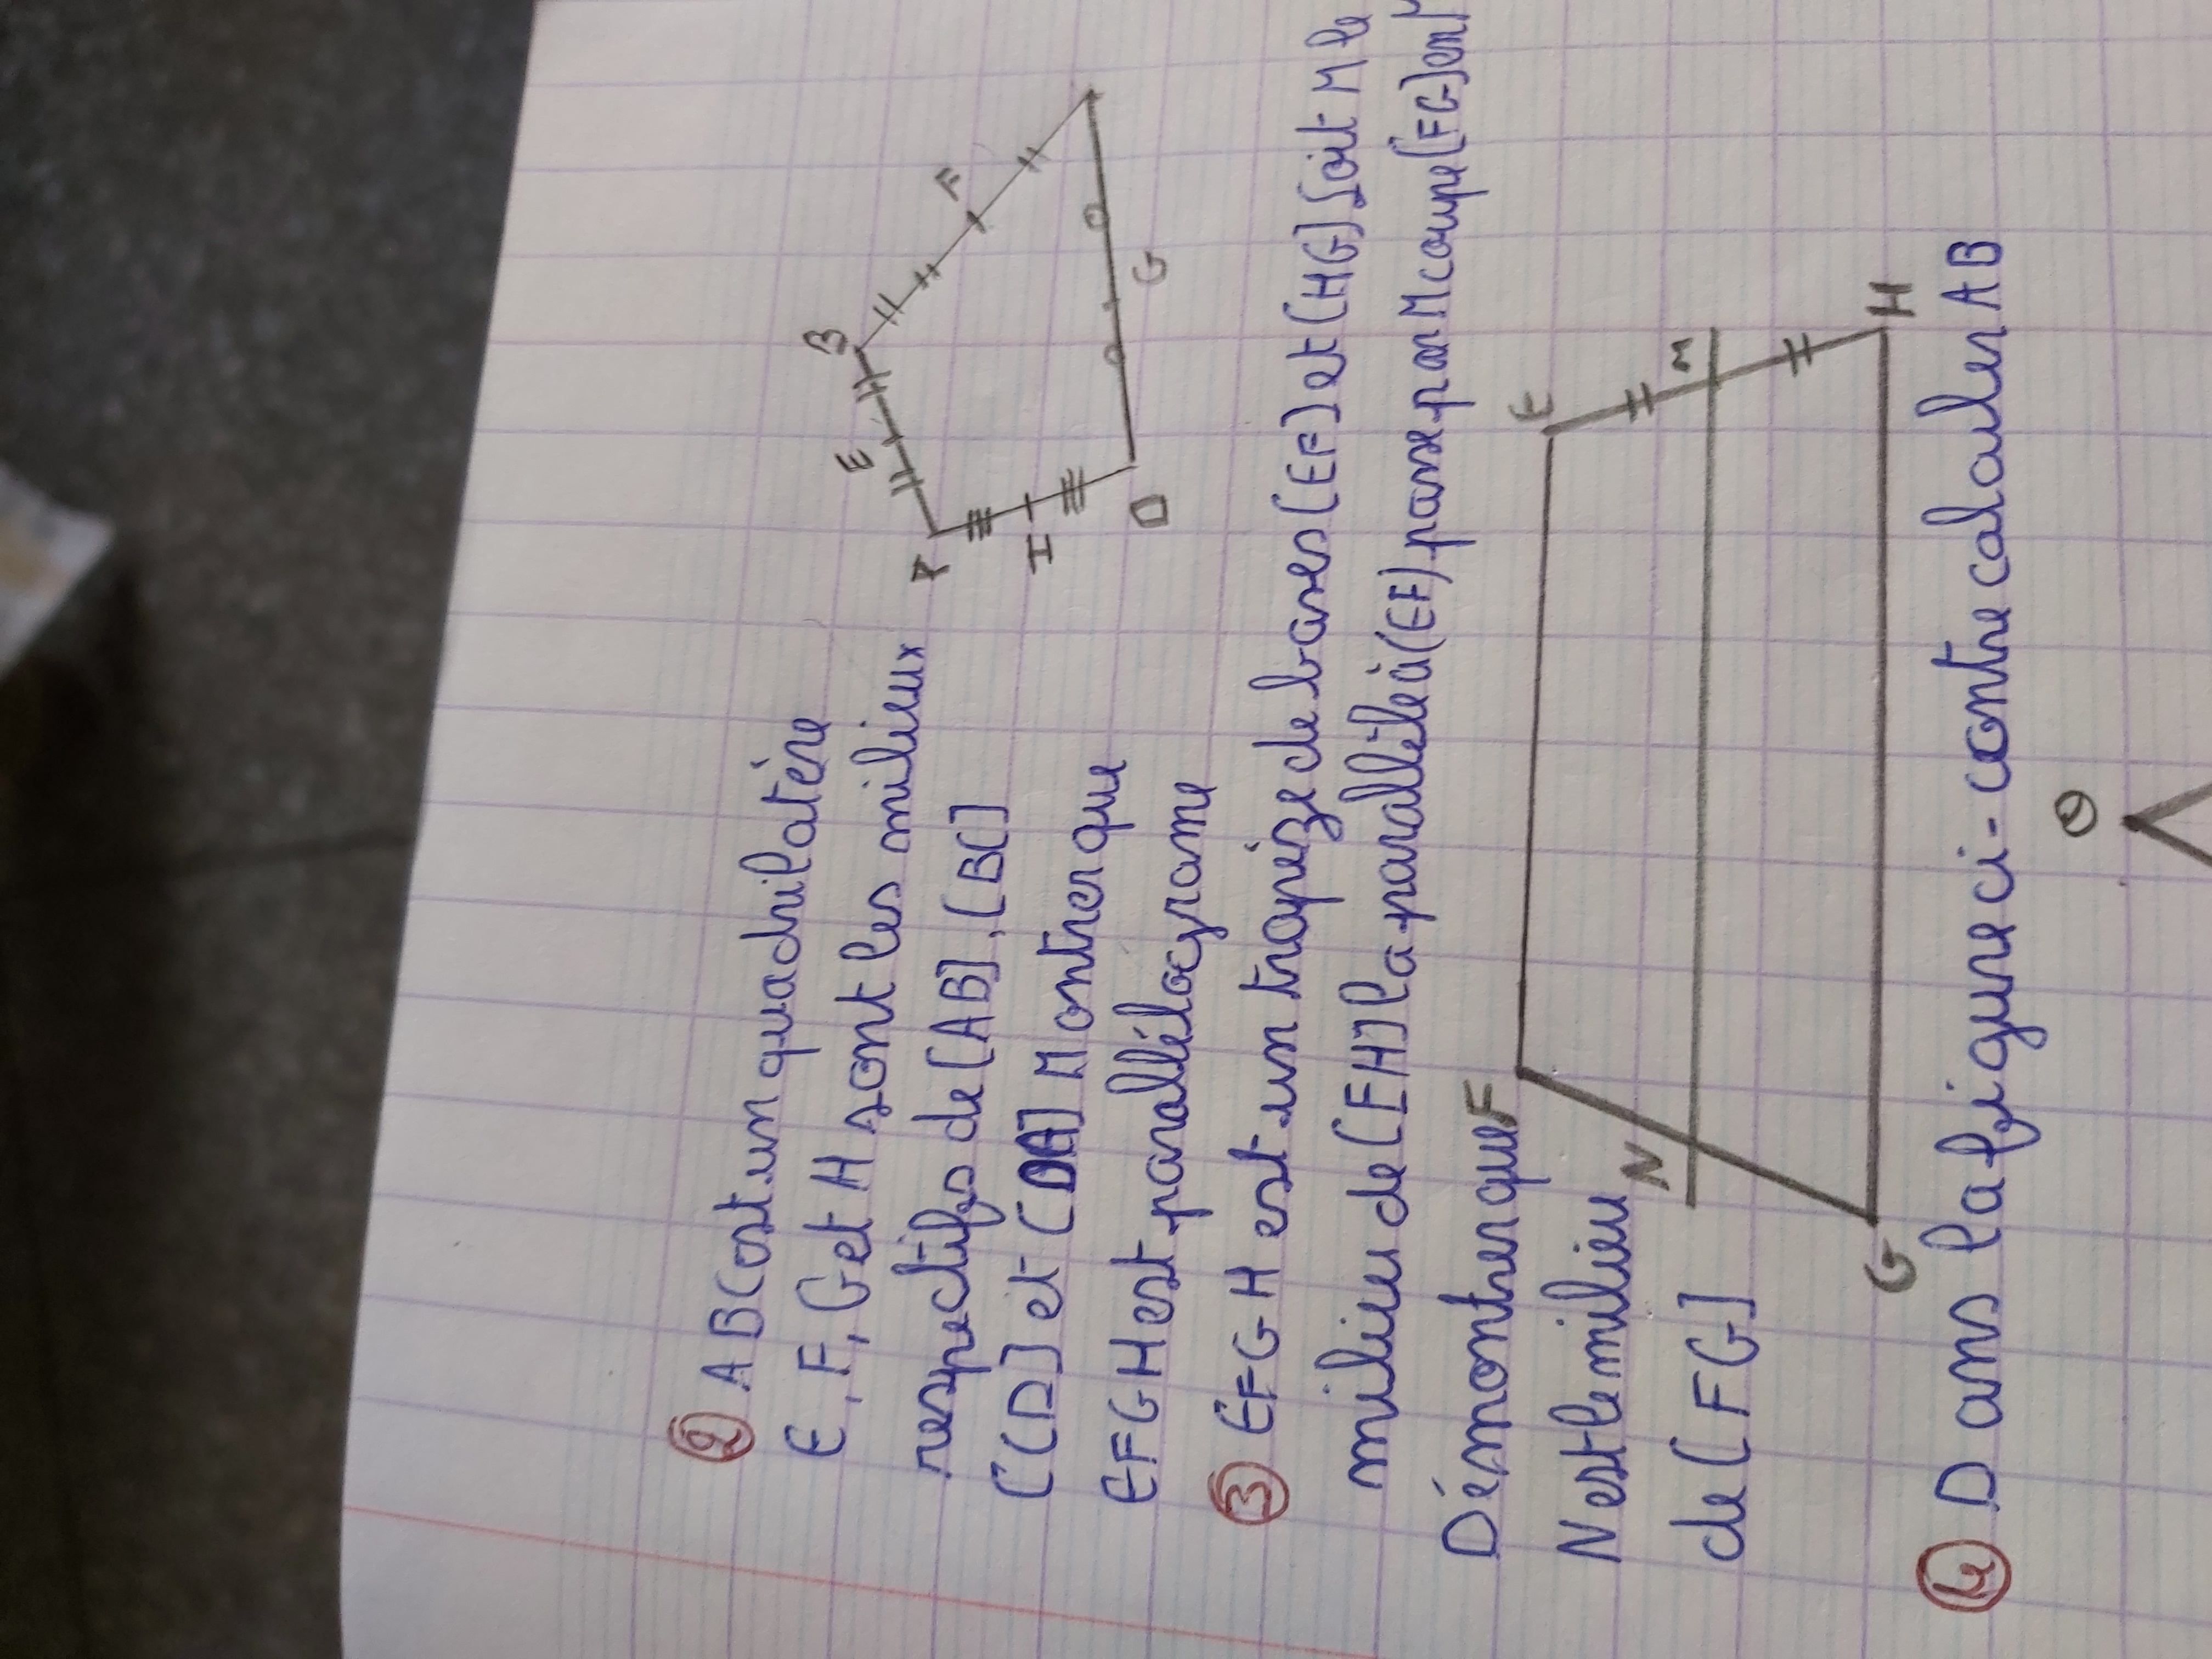 ② ABCD est un quadrilatère
E, F, G et H sont les milieux
respectifs de [AB], [BC]
[CD] et [DA] Montrer que
EFGH est parallélograme
B
E
A
F
H
D
G
③ EFGH est un trapèze de bases [EF] et [HG] Soit M le
milieu de [EH] la parallèle à (EF) passe par M coupe [FG] en
Démontrer que
N est le milieu
de [FG]
F
E
N
M
G
H
④ Dans la figure ci-contre calculer AB
O